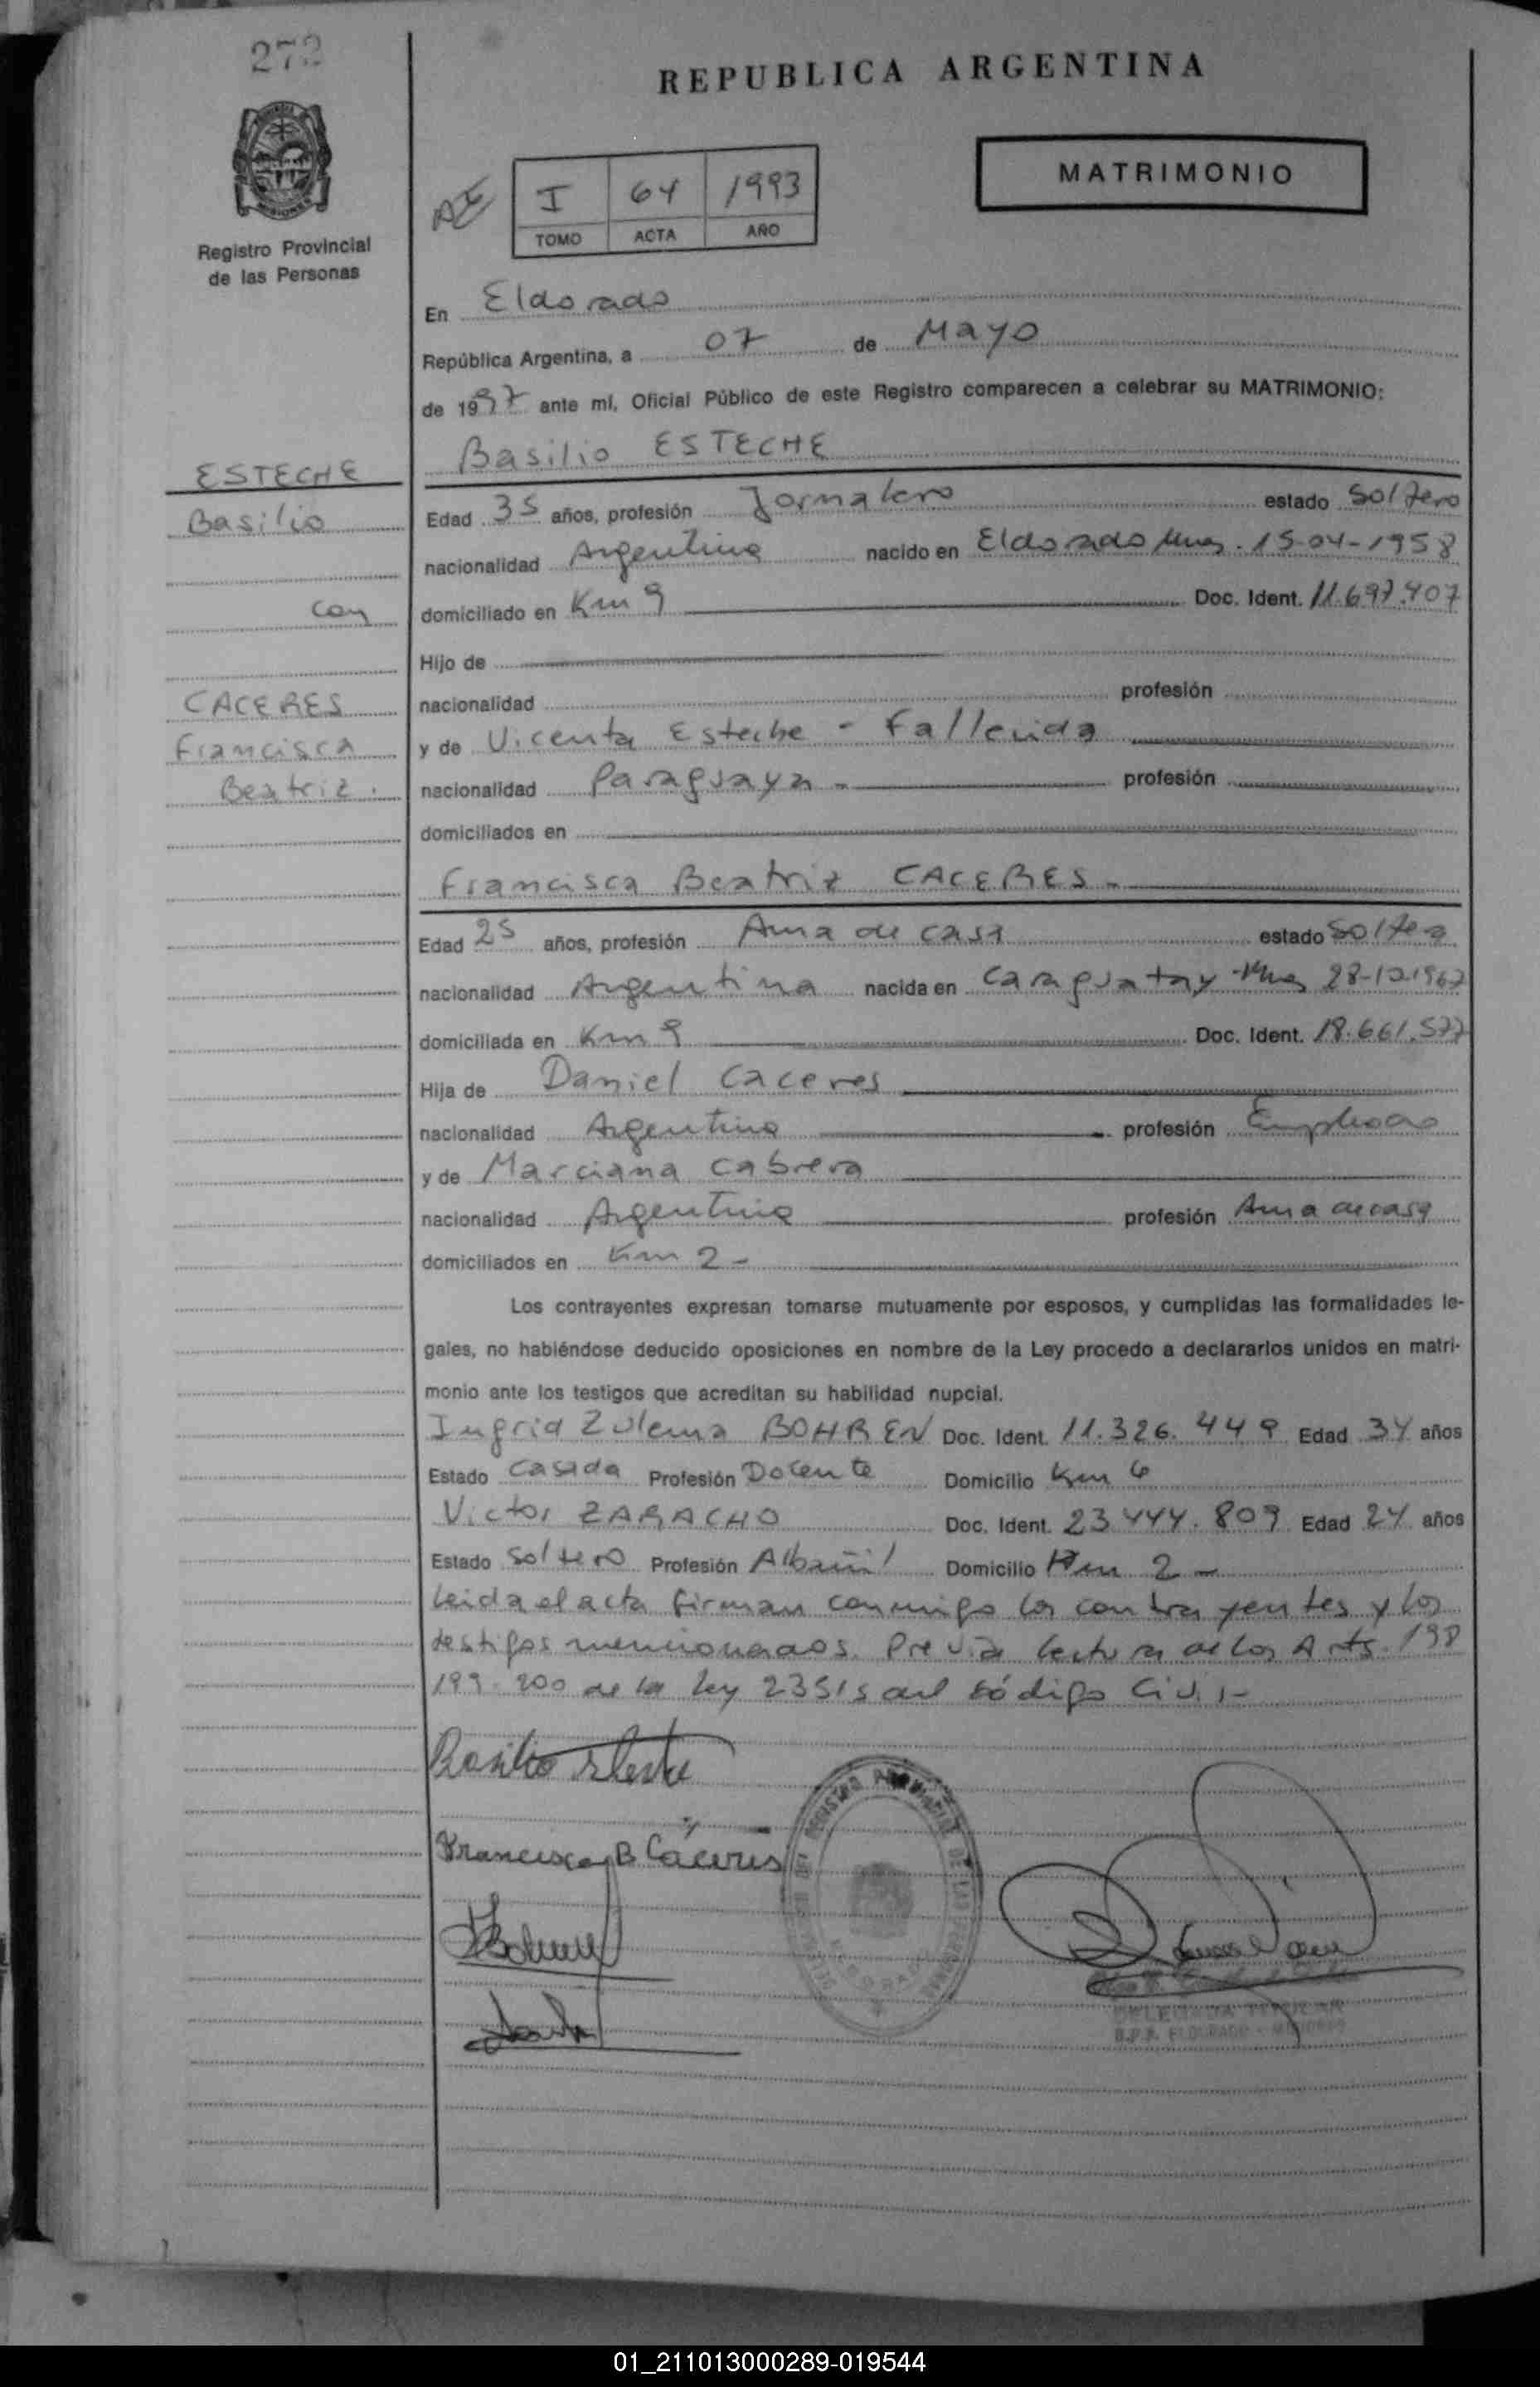 272
REPUBLICA ARGENTINA
MATRIMONIO
I 64 1993
TOMO ACTA AÑO
Registro Provincial
de las Personas
En Eldorado
República Argentina, a 07 de Mayo
de 1997 ante mí, Oficial Público de este Registro comparecen a celebrar su MATRIMONIO:
Basilio ESTECHE
ESTECHE
Basilio
con
CACERES
Francisca
Beatriz.
Edad 35 años, profesión Jornalero estado Soltero
nacionalidad Argentina nacido en Eldorado Mnes. 15-04-1958
domiciliado en Km 9 Doc. Ident. 11.697.407
Hijo de
nacionalidad profesión
y de Vicenta Esteche - Fallecida
nacionalidad Paraguaya - profesión
domiciliados en
Francisca Beatriz CACERES -
Edad 25 años, profesión Ama de casa estado Soltera
nacionalidad Argentina nacida en Caraguatay Mnes 28-12-1967
domiciliada en Km 9 Doc. Ident. 18.661.577
Hija de Daniel Caceres
nacionalidad Argentina profesión Empleado
y de Marciana Cabrera
nacionalidad Argentina profesión Ama de casa
domiciliados en Km 2 -
Los contrayentes expresan tomarse mutuamente por esposos, y cumplidas las formalidades le-
gales, no habiéndose deducido oposiciones en nombre de la Ley procedo a declararlos unidos en matri-
monio ante los testigos que acreditan su habilidad nupcial.
Ingrid Zulema BOHREN Doc. Ident. 11.326.449 Edad 34 años
Estado Casada Profesión Docente Domicilio Km 6
Victor ZARACHO Doc. Ident. 23.444.809 Edad 24 años
Estado Soltero Profesión Albañil Domicilio Km 2 -
Leida el acta firman conmigo los contrayentes y los
testigos mencionados. Previa lectura de los Arts. 198
199-200 de la Ley 23515 del Código Civil-
Basilio Esteche
Francisca B Cáceres
REGISTRO PROVINCIAL DE LAS PERSONAS
DELEGADA TITULAR
R.P.P. ELDORADO - MISIONES
01_211013000289-019544